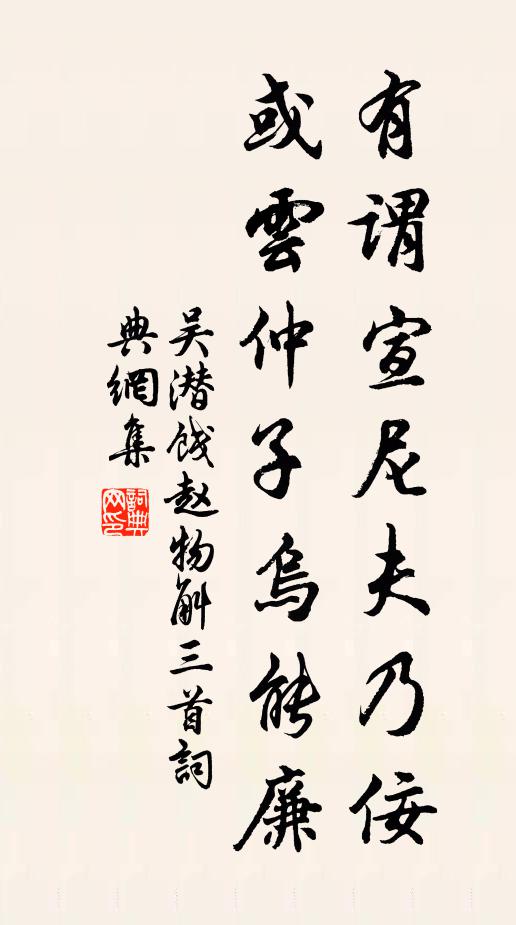 有謂宣尼夫乃佞
或雲仲子烏能廉
吴潜饯赵物斛三首詞
典網集
詞典网印